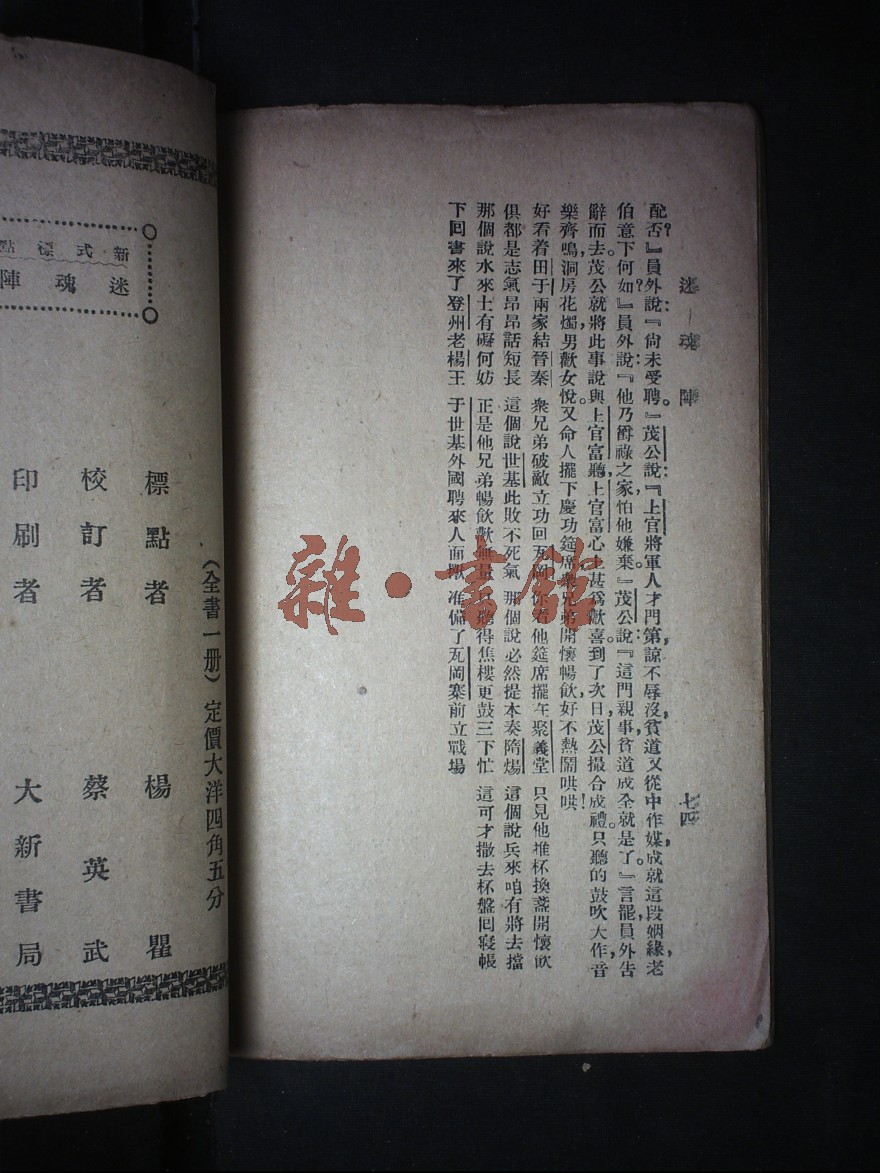 迷魂陣
七四
配否?』員外說:『尙未受聘。』茂公說:『上官將軍人才門第,諒不辱沒,貧道又從中作媒,成就這段姻緣,老
伯意下何如?』員外說:『他乃爵祿之家,怕他嫌棄。』茂公說:『這門親事,貧道成全就是了。』言罷,員外告
辭而去。茂公就將此事說與上官富聽,上官富心上甚爲歡喜。到了次日,茂公撮合成禮。只聽的鼓吹大作,音
樂齊鳴,洞房花燭,男歡女悅。又命人擺下慶功筵席,衆兄弟開懷暢飲,好不熱鬧哄哄!
好看着田于兩家結晉秦 衆兄弟破敵立功回瓦岡 你看他筵席擺在聚義堂 只見他推杯換盞開懷飲
俱都是志氣昂昂話短長 這個說世基此敗不死氣 那個說必然提本奏隋煬 這個說兵來咱有將去擋
那個說水來土有礙何妨 正是他兄弟暢飲歡無量 聽得焦樓更鼓三下忙 這可才撤去杯盤回寢帳
下回書來了登州老楊王 于世基外國聘來人面獸 准備了瓦岡寨前立戰場
新式標點
迷魂陣
(全書一册)定價大洋四角五分
標點者 楊瞿
校訂者 蔡英武
印刷者 大新書局
雜·書館